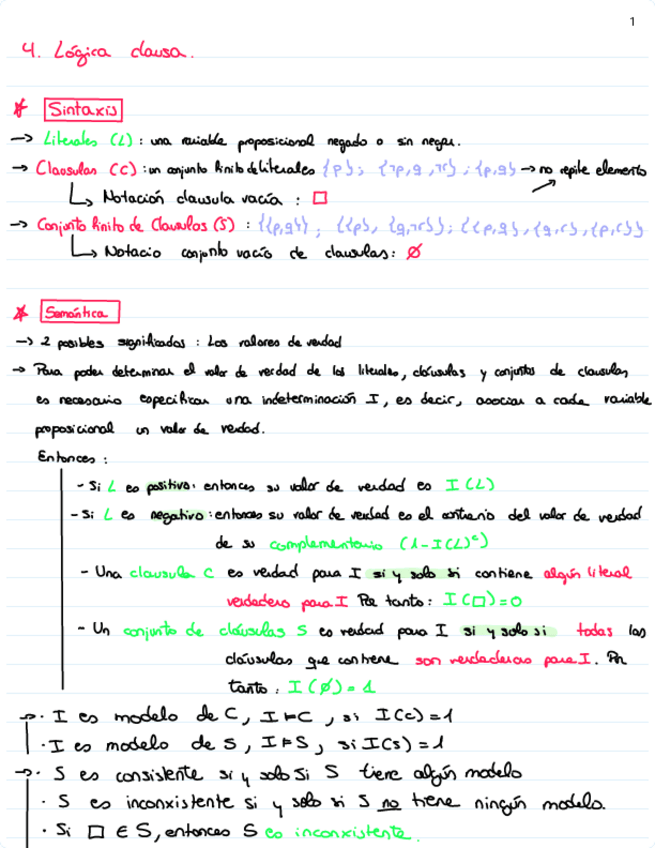 1
4. Lógica clausa.
* Sintaxis
→ Literales (L) : una variable proposicional negado o sin negar.
→ Clausulas (C) : un conjunto finito de literales {p} ; {¬p,q,¬r} ; {p,q} → no repite elemento
↳ Notación clausula vacía : □
→ Conjunto finito de Clausulas (S) : {{p,q}} ; {{p}, {q,¬r}} ; {{p,q}, {q,r}, {p,r}}
↳ Notacio conjunto vacío de clausulas: ∅
* Semántica
→ 2 posibles significados : Los valores de verdad
→ Para poder determinar el valor de verdad de los literales, cláusulas y conjuntos de clausulas,
es necesario especificar una indeterminación I, es decir, asociar a cada variable
proposicional un valor de verdad.
Entonces :
- Si L es positivo: entonces su valor de verdad es I(L)
- Si L es negativo : entonces su valor de verdad es el contrario del valor de verdad
de su complementario (1-I(L)ᶜ)
- Una clausula C es verdad para I si y solo si contiene algún literal
verdadero para I Por tanto : I(□)=0
- Un conjunto de cláusulas S es verdad para I si y solo si todas las
cláusulas que contiene son verdaderas para I. Por
tanto : I(∅)=1
→ · I es modelo de C, I⊨C, si I(C)=1
· I es modelo de S, I⊨S, si I(S)=1
→ · S es consistente si y solo si S tiene algún modelo
· S es inconxistente si y solo si S no tiene ningún modelo.
· Si □ ∈ S, entonces S es inconxistente.